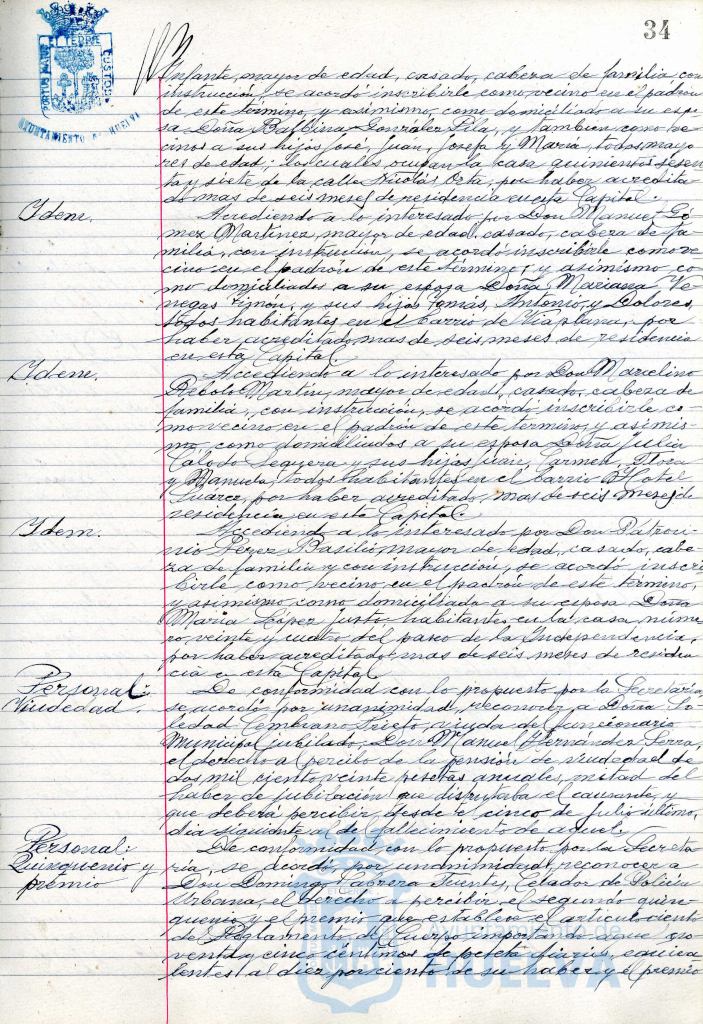 34
PORTUS MARIS ET TERRE CUSTODIA
AYUNTAMIENTO DE HUELVA
Infante, mayor de edad, casado, cabeza de familia con
instrucción, se acordó inscribirle como vecino en el padrón
de este término, y asimismo, como domiciliado a su espo-
sa Doña Balbina González Pila, y tambien como ve-
cinos a sus hijos José, Juan, Josefa y María, todos mayo
res de edad; los cuales ocupan la casa quinientos sesen
ta y siete de la calle Nicolás Orta, por haber acredita
do mas de seis meses de residencia en esta Capital.
Idem.
Accediendo a lo interesado por Don Manuel Gó
mez Martinez, mayor de edad, casado, cabeza de fa
milia, con instrucción, se acordó inscribirle como ve
cino en el padrón de este término; y asimismo co
mo domiciliados a su esposa Doña Mariana Ve
negas Limón, y sus hijos Tomás, Antonio y Dolores,
todos habitantes en el barrio de Viaplana, por
haber acreditado mas de seis meses de residencia
en esta Capital.
Idem.
Accediendo a lo interesado por Don Marcelino
Rebollo Martín, mayor de edad, casado, cabeza de
familia, con instrucción, se acordó inscribirle co-
mo vecino en el padrón de este término, y asimis-
mo, como domiciliados a su esposa Doña Julia
y sus hijos Carmen,
y Manuela, todos habitantes en el barrio Hotel
Suárez, por haber acreditado, mas de seis meses de
residencia en esta Capital.
Idem.
Accediendo a lo interesado por Don Patroci-
nio Pérez Basilio, mayor de edad, casado, cabe-
za de familia y con instrucción, se acordó inscri
birle como vecino en el padrón de este término,
y asimismo como domiciliada a su esposa Doña
María López Justo, habitantes en la casa núme
ro, veinte y cuatro del paseo de la Independencia,
por haber acreditado, mas de seis meses de residen
cia en esta Capital.
Personal:
Viudedad.
De conformidad con lo propuesto por la Secretaría,
se acordó por unanimidad, reconocer a Doña So-
ledad Cembrano Prieto, viuda del funcionario
Municipal jubilado, Don Manuel Hernández Serra,
el derecho a percibo de la pensión de viudedad de
dos mil ciento veinte pesetas anuales, mitad del
haber de jubilación que disfrutaba el causante, y
que deberá percibir, desde el cinco de julio último,
dia siguiente al de fallecimiento de aquel.
Personal:
Quinquenio y
premio
De conformidad con lo propuesto por la Secreta
ría, se acordó, por unanimidad, reconocer a
Don Domingo Cabrera Fuentes, Celador de Policía
Urbana, el derecho a percibir el segundo quin-
quenio y el premio que establece el artículo ciento
del Reglamento de Cuerpo importando aquel no
venta y cinco céntimos de peseta diarios, equiva
lentes al diez por ciento de su haber y el premio
Ayuntamiento de
HUELVA